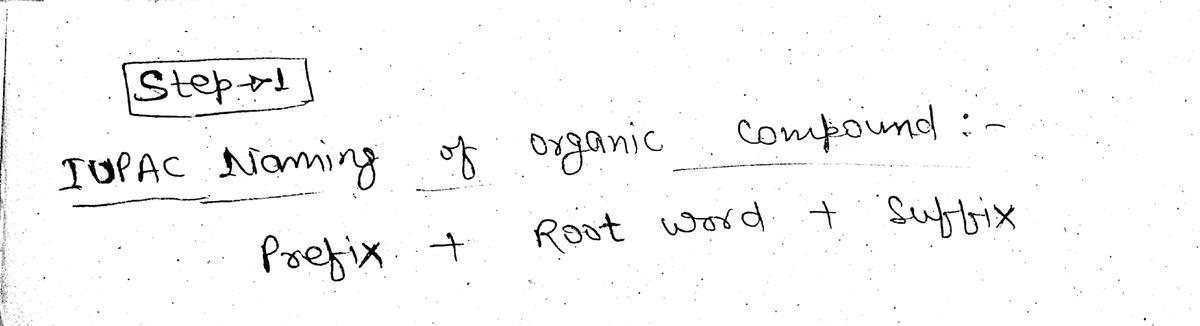 Step → 1
IUPAC Naming of organic compound :-
Prefix + Root word + Suffix